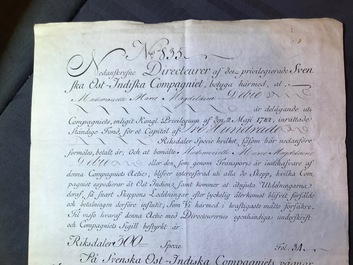 No 855.
Nedanskrefne Directeurer af det privilegierade Sven
ska Ost-Indiska Compagniet, betyga härmed, at
Mademoiselle Marie Magdelaine
är delägande uti
Compagniets, enligit Kongl. Privilegium af den 2 Maji 1782, inrättade
Ständige Fond, för et Capital af Tre Hundrade
Riksdaler Specie hvilket, såsom här nedanföre
förmäles, betalt är; och at bemälte Mademoiselle Marie Magdelaine
eller den, som genom Transport är innehafvare af
denna Compagniets Actie, blifver interesserad uti alla de Skepp, hvilka Com
pagniet expedierar åt Ost-Indien, samt kommer at åtnjuta Utdelningarne,
deraf, så snart Skeppens Laddningar efter lyckelig återkomst blifvit försålde
och betalningen derföre influtit; Som Vi härmed i kraftigaste måtto försäkre.
Til visso hvaraf denna Actie med Directeurernes egenhändiga underskrift
och Compagniets Sigill bestyrkt är
Riksdaler 300 Specie Fol. 34.
På Svenska Ost-Indiska Compagniets vägnar